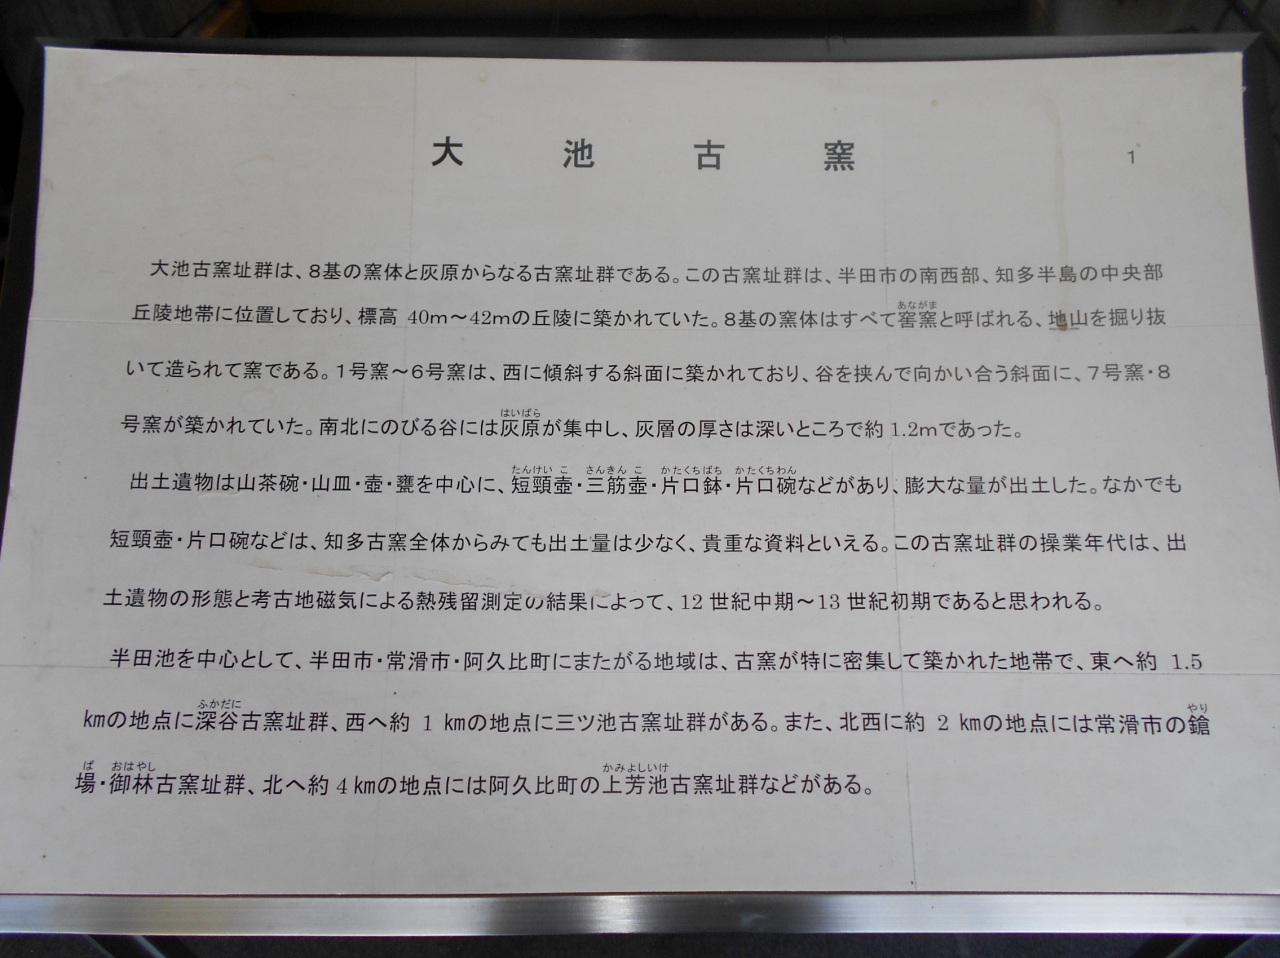 大池古窯
1
大池古窯址群は、8基の窯体と灰原からなる古窯址群である。この古窯址群は、半田市の南西部、知多半島の中央部
あながま
丘陵地帯に位置しており、標高 40m～42mの丘陵に築かれていた。8基の窯体はすべて窖窯と呼ばれる、地山を掘り抜
いて造られて窯である。1号窯～6号窯は、西に傾斜する斜面に築かれており、谷を挟んで向かい合う斜面に、7号窯・8
はいばら
号窯が築かれていた。南北にのびる谷には灰原が集中し、灰層の厚さは深いところで約1.2mであった。
たんけいこ さんきんこ かたくちばち かたくちわん
出土遺物は山茶碗・山皿・壺・甕を中心に、短頸壺・三筋壺・片口鉢・片口碗などがあり、膨大な量が出土した。なかでも
短頸壺・片口碗などは、知多古窯全体からみても出土量は少なく、貴重な資料といえる。この古窯址群の操業年代は、出
土遺物の形態と考古地磁気による熱残留測定の結果によって、12世紀中期～13世紀初期であると思われる。
半田池を中心として、半田市・常滑市・阿久比町にまたがる地域は、古窯が特に密集して築かれた地帯で、東へ約 1.5
ふかだに やり
kmの地点に深谷古窯址群、西へ約 1 kmの地点に三ツ池古窯址群がある。また、北西に約 2 kmの地点には常滑市の鎗
ば おはやし かみよしいけ
場・御林古窯址群、北へ約4kmの地点には阿久比町の上芳池古窯址群などがある。